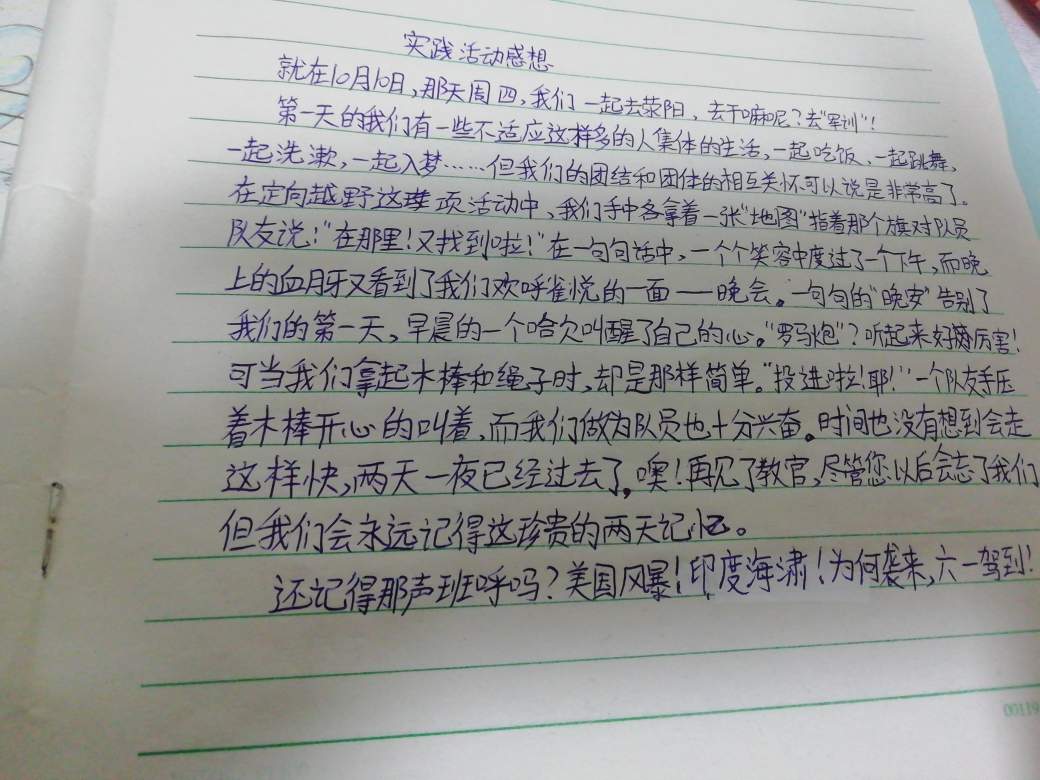 实践活动感想
就在10月10日，那天周四，我们一起去荥阳，去干嘛呢？去"军训"！
第一天的我们有一些不适应这样多的人集体的生活，一起吃饭、一起跳舞，
一起洗漱，一起入梦……但我们的团结和团体的相互关怀可以说是非常高了。
在定向越野这项活动中，我们手中各拿着一张"地图"指着那个旗对队员
队友说："在那里！又找到啦！"在一句句话中，一个个笑容中度过了一个下午，而晚
上的血月牙又看到了我们欢呼雀悦的一面——晚会。一句句的"晚安"告别了
我们的第一天，早晨的一个哈欠叫醒了自己的心。"罗马炮"？听起来好厉害！
可当我们拿起木棒和绳子时，却是那样简单。"投进啦！耶！"一个队友手压
着木棒开心的叫着，而我们做为队员也十分兴奋。时间也没有想到会走
这样快，两天一夜已经过去了，噢！再见了教官，尽管您以后会忘了我们
但我们会永远记得这珍贵的两天记忆。
还记得那声班呼吗？美国风暴！印度海潇！为何袭来，六一驾到！
00119